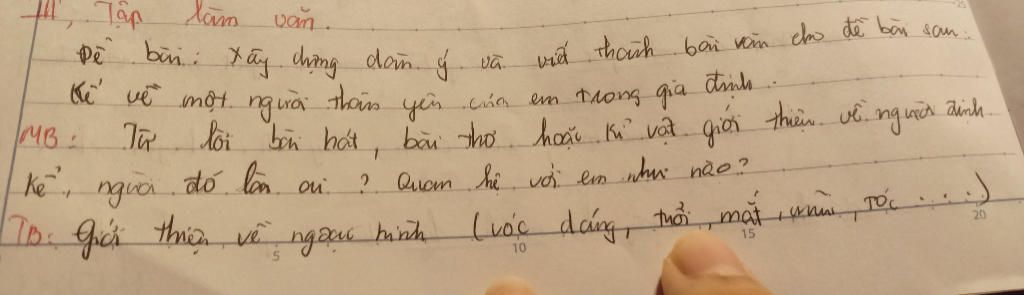 III, Tập làm văn.
Đề bài: Xây dựng dàn ý và viết thành bài văn cho đề bài sau:
Kể về một người thân yêu của em trong gia đình.
MB: Từ lời bài hát, bài thơ hoặc kỉ vật giới thiệu về người định
kể, người đó là ai? Quan hệ với em như nào?
TB: Giới thiệu về ngoại hình (vóc dáng, tuổi, mắt, mũi, tóc .....)
5 10 15 20
25